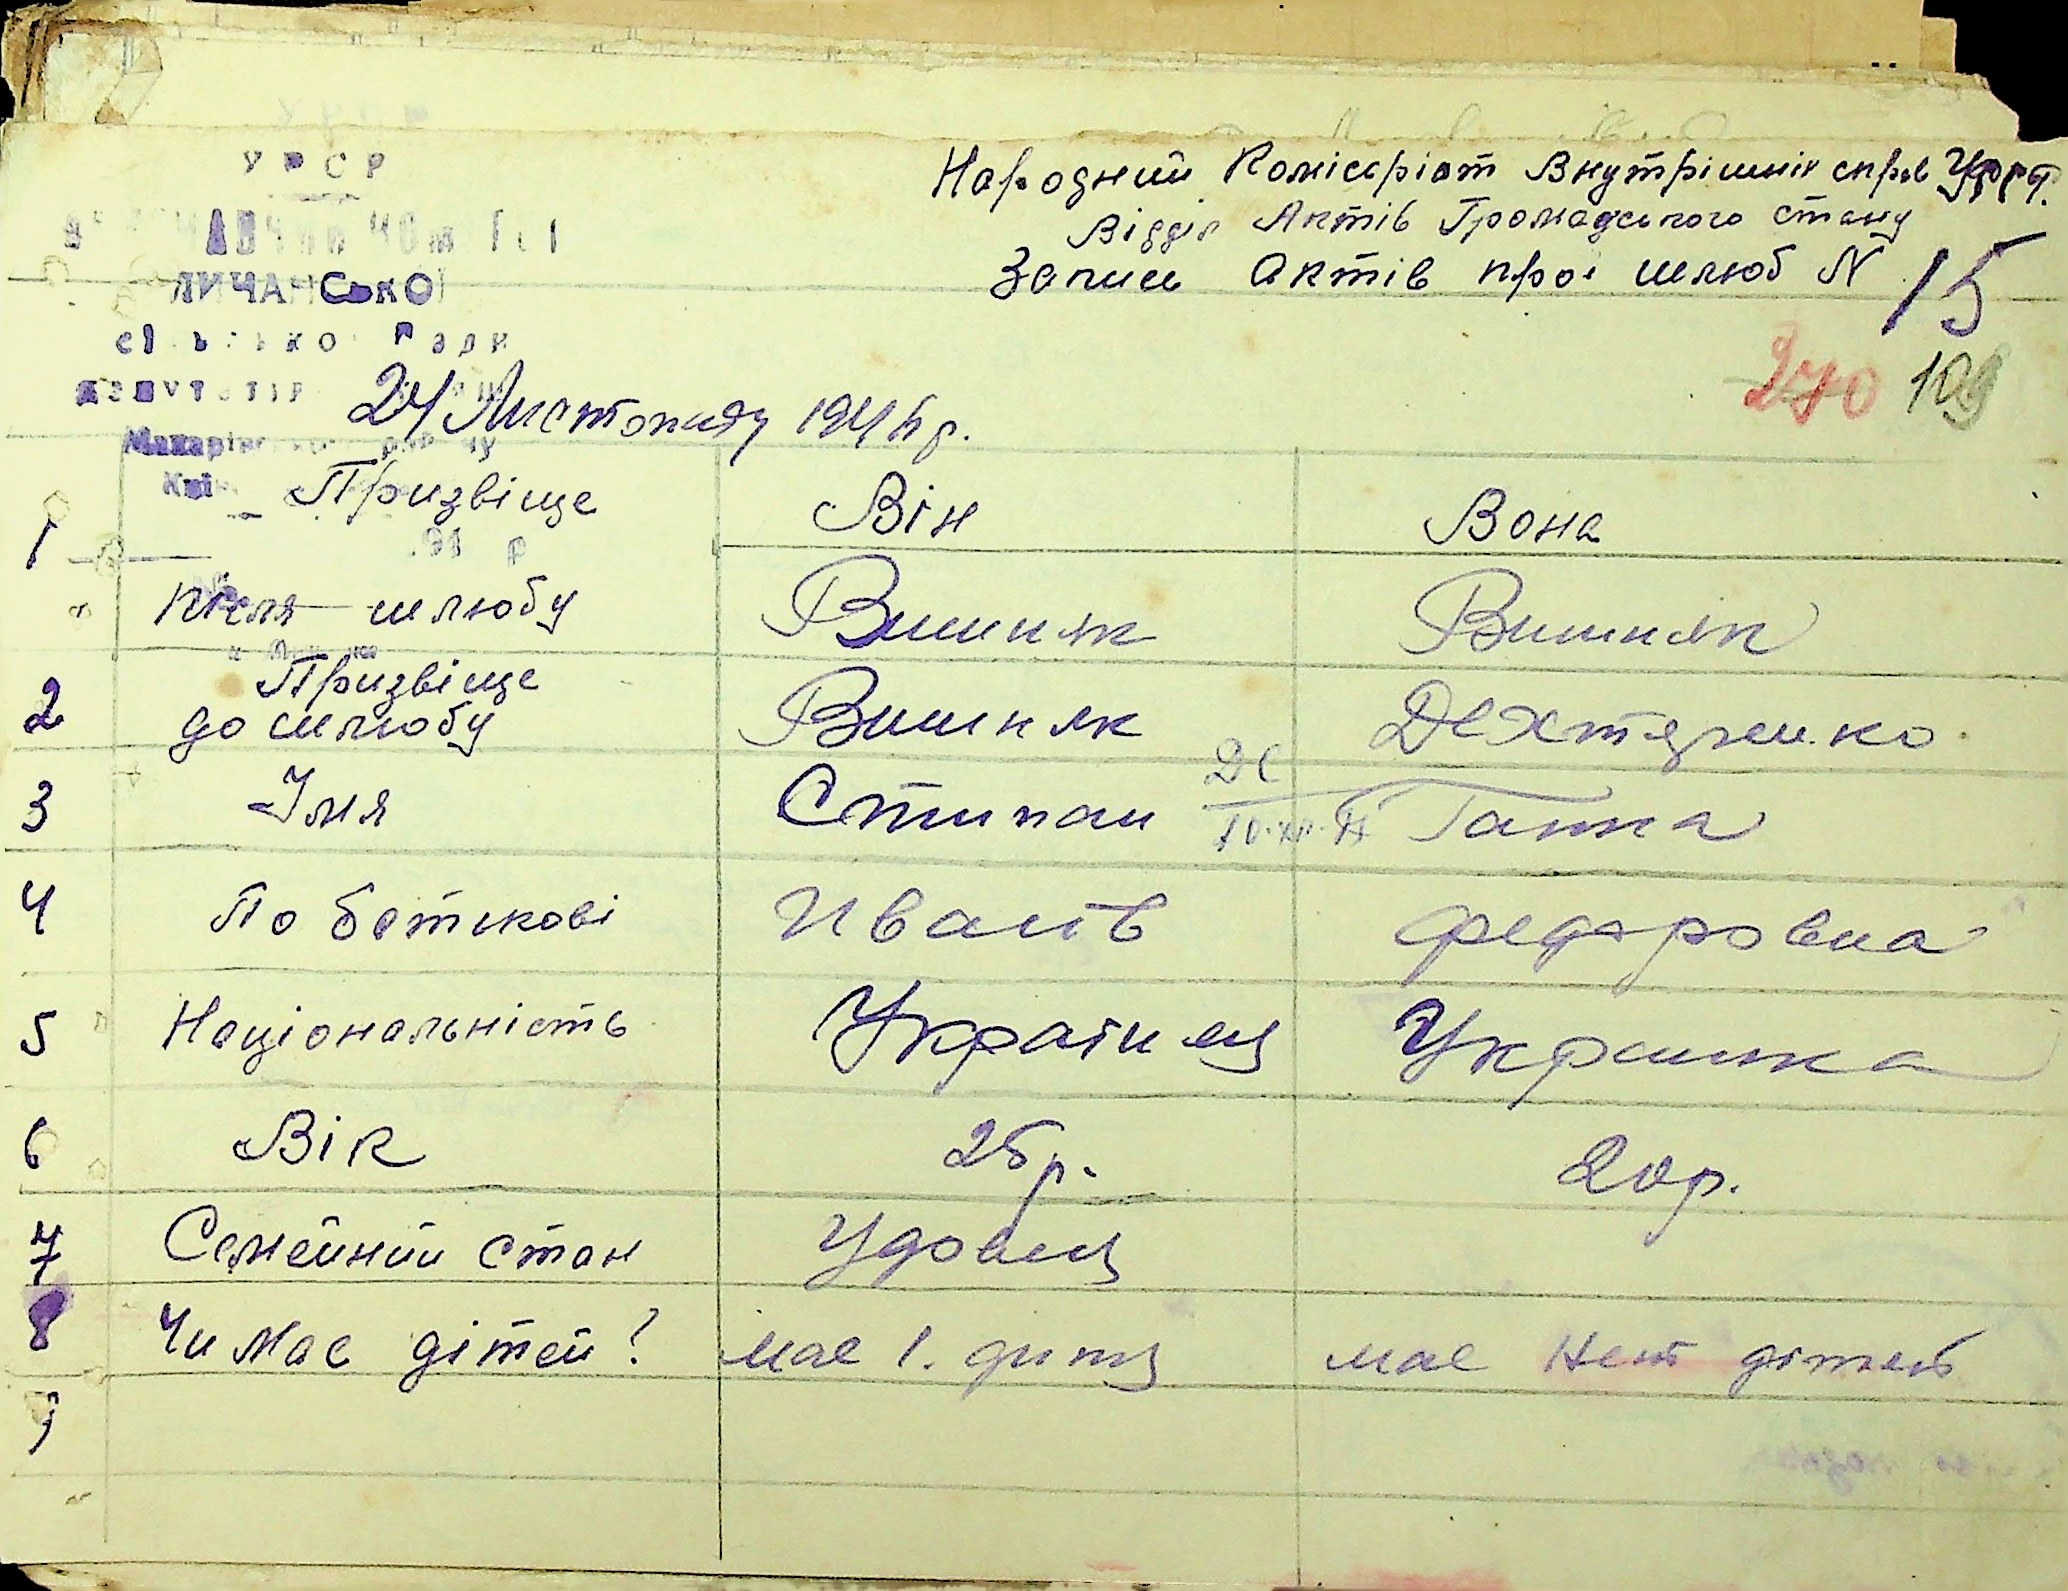 УРСР
ЛИЧАНСЬКОЇ
Ради
Народний Комісаріат Внутрішніх справ УРСР.
Відділ Актів Громадського стану
Запись Актів про шлюб N 15
270 109
24 Листопаду 194 р.
1 Призвіще Він Вона
після шлюбу Вишняк Вишняк
2 Призвіще
до шлюбу Вишняк Дехтяренко
3 Імя Стипан Ганна
4 По батькові Иванів Федоровна
5 Національність Українец Украинка
6 Вік 25р. 20р.
7 Семейний стан Удовец
8 Чи має дітей? має 1. дитя має Нет дітей
9